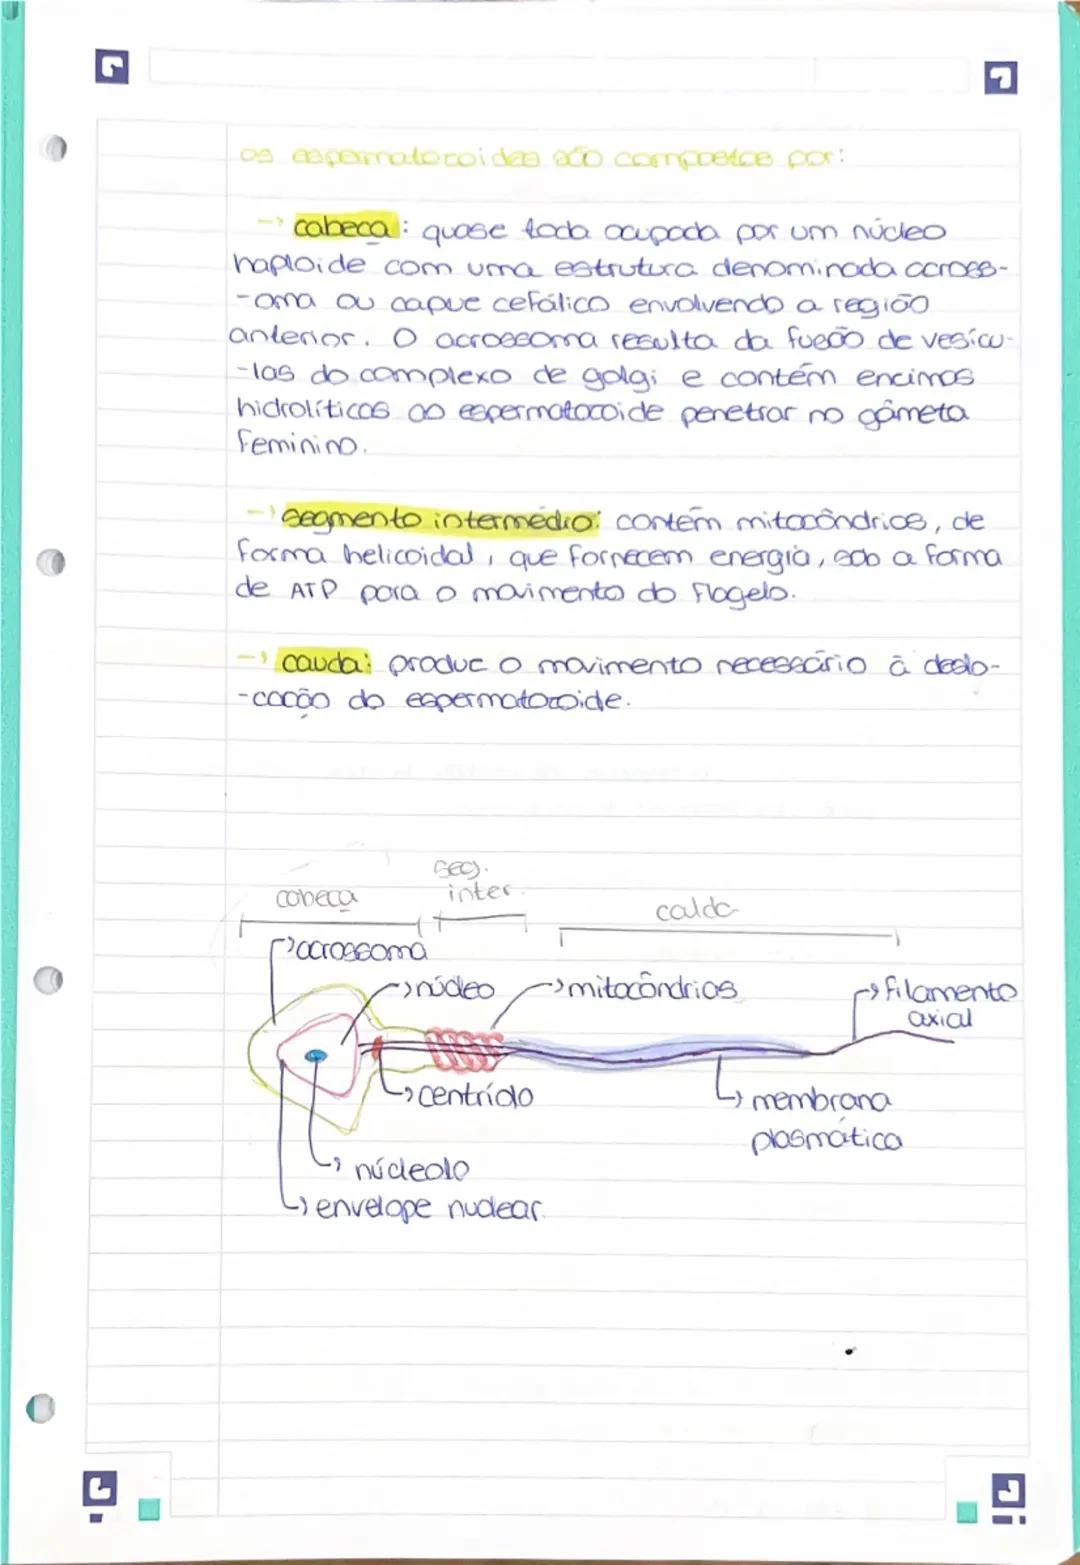 os espermatozoides são compostos por:
-> cabeça: quase toda ocupada por um núcleo
haploide com uma estrutura denominada across-
-oma ou capuz cefálico envolvendo a região
anterior. O acrossoma resulta da fusão de vesícu-
-las do complexo de golgi e contém enzimas
hidrolíticas ao espermatozoide penetrar no gâmeta
feminino.
-> segmento intermédio: contém mitocôndrias, de
forma helicoidal, que fornecem energia, sob a forma
de ATP para o movimento do flagelo.
-> cauda: produz o movimento necessário à deslo-
-cação do espermatozoide.
cabeça
seg.
inter.
calda
->acrossoma
->núcleo
->mitocôndrias
->filamento
axial
->centríolo
->membrana
plasmática
->núcleolo
->envelope nuclear.